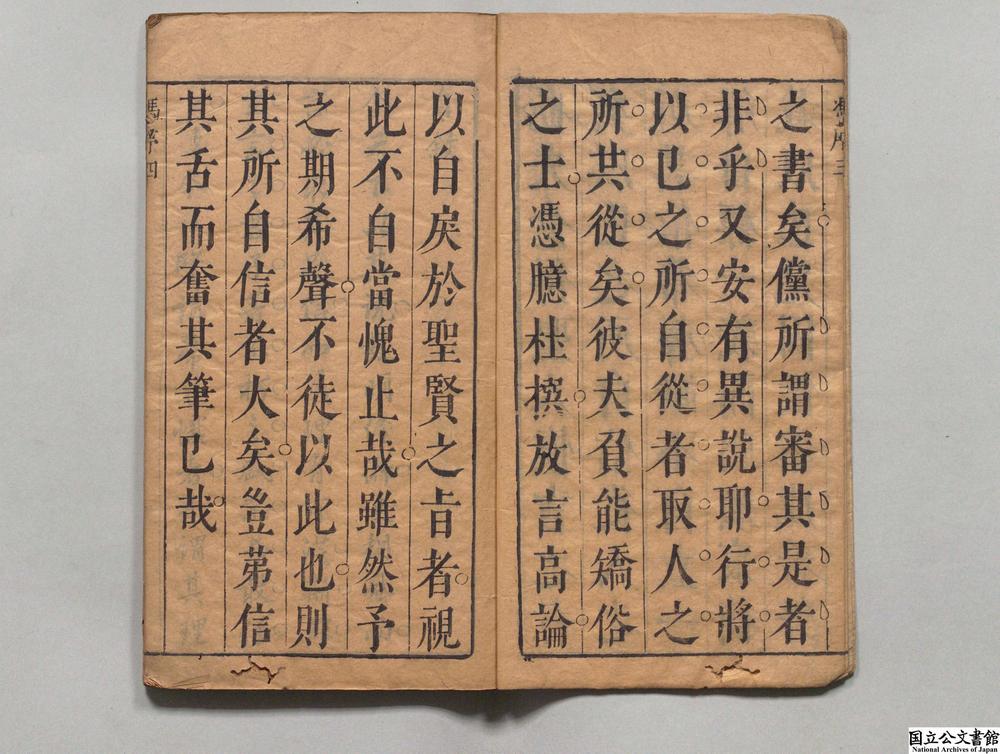 馮序三
之書矣儻所謂審其是者
非乎又安有異說耶行將
以已之所自從者取人之
所共從矣彼夫負能矯俗
之士憑臆杜撰放言高論
以自戾於聖賢之旨者視
此不自當愧止哉雖然予
之期希聲不徒以此也則
其所自信者大矣豈苐信
其舌而奮其筆已哉
馮序四
国立公文書館
National Archives of Japan